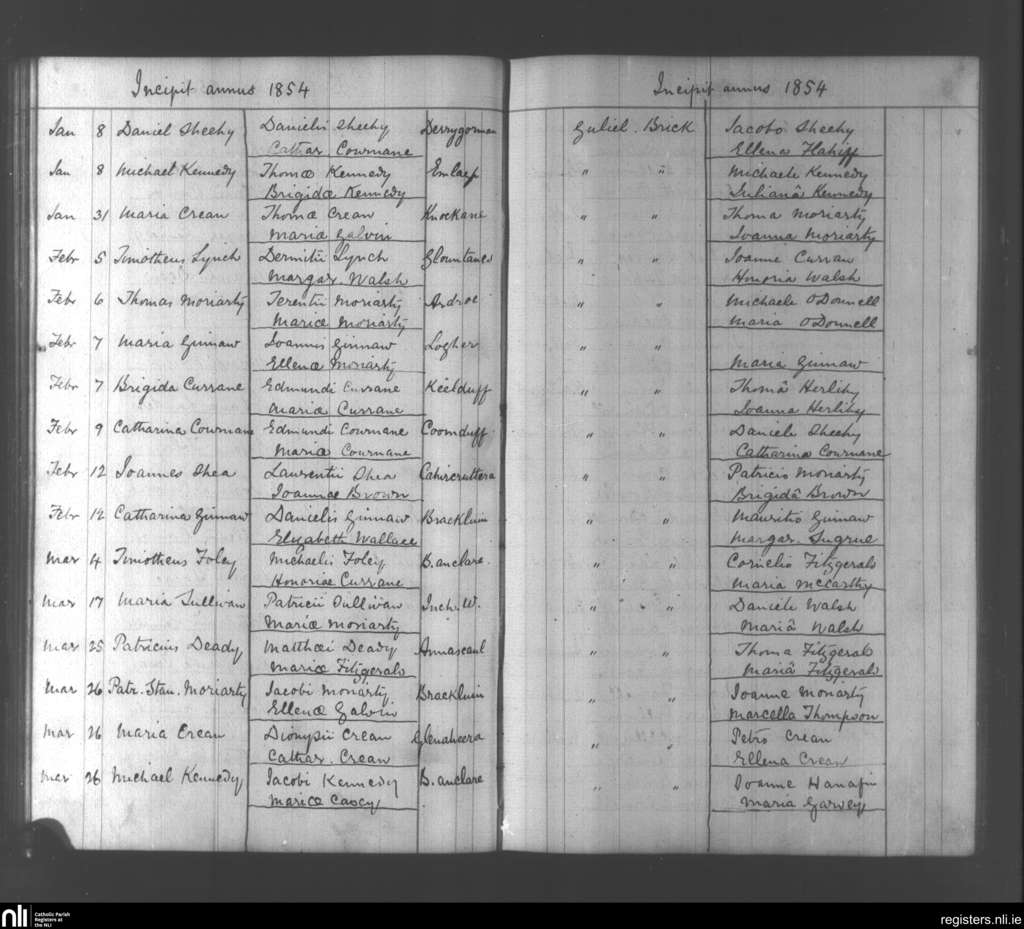 Incipit annus 1854
Jan 8 Daniel Sheehy Danielis Sheehy Derrygorman
Cathar. Cournane
Jan 8 Michael Kennedy Thomæ Kennedy Emlagh
Brigidæ Kennedy
Jan 31 Maria Crean Thomæ Crean Knockane
Maria Galvin
Febr 5 Timotheus Lynch Dermitii Lynch Glountanes
Margar. Walsh
Febr 6 Thomas Moriarty Terentii Moriarty Ardroe
Mariæ Moriarty
Febr 7 Maria Ginnaw Joannis Ginnaw Logher
Ellenæ Moriarty
Febr 7 Brigida Currane Edmundi Currane Keelduff
Mariæ Currane
Febr 9 Catharina Cournane Edmundi Cournane Coomduff
Maria Cournane
Febr 12 Joannes Shea Laurentii Shea Cahircruttera
Joannæ Brown
Febr 12 Catharina Ginnaw Danielis Ginnaw Brackluin
Elizabeth Wallace
Mar 4 Timotheus Foley Michaelis Foley B.anclare.
Honoriæ Currane
Mar 17 Maria Sullivan Patricii Sullivan Inch. W.
Mariæ Moriarty
Mar 25 Patricius Deady Matthæi Deady Annascaul
Mariæ Fitzgerald
Mar 26 Patr. Stan. Moriarty Jacobi Moriarty Brackluin
Ellenæ Galvin
Mar 26 Maria Crean Dionysii Crean Glenaheera
Cathar. Crean
Mar 26 Michael Kennedy Jacobi Kennedy B.anclare
Mariæ Casey
Incipit annus 1854
Guliel. Brick Jacobo Sheehy
Ellena
" " Michaele Kennedy
Julianâ Kennedy
" " Thoma Moriarty
Joanna Moriarty
" " Joanne Curran
Honoria Walsh
" " Michaele O'Donnell
Maria O'Donnell
" "
Maria Ginnaw
" " Thomâ Herlihy
Joanna Herlihy
" " Daniele Sheehy
Catharina Cournane
" " Patricio Moriarty
Brigidâ Brown
" " Mauritio Ginnaw
Margar. Sugrue
" " Cornelio Fitzgerald
Maria McCarthy
" " Daniele Walsh
Mariâ Walsh
" " Thoma Fitzgerald
Mariâ Fitzgerald
" " Joanne Moriarty
Marcella Thompson
" " Petro Crean
Ellena Crean
" " Joanne Hanafin
Maria Garvey
nli Catholic Parish
Registers at
the NLI
registers.nli.ie